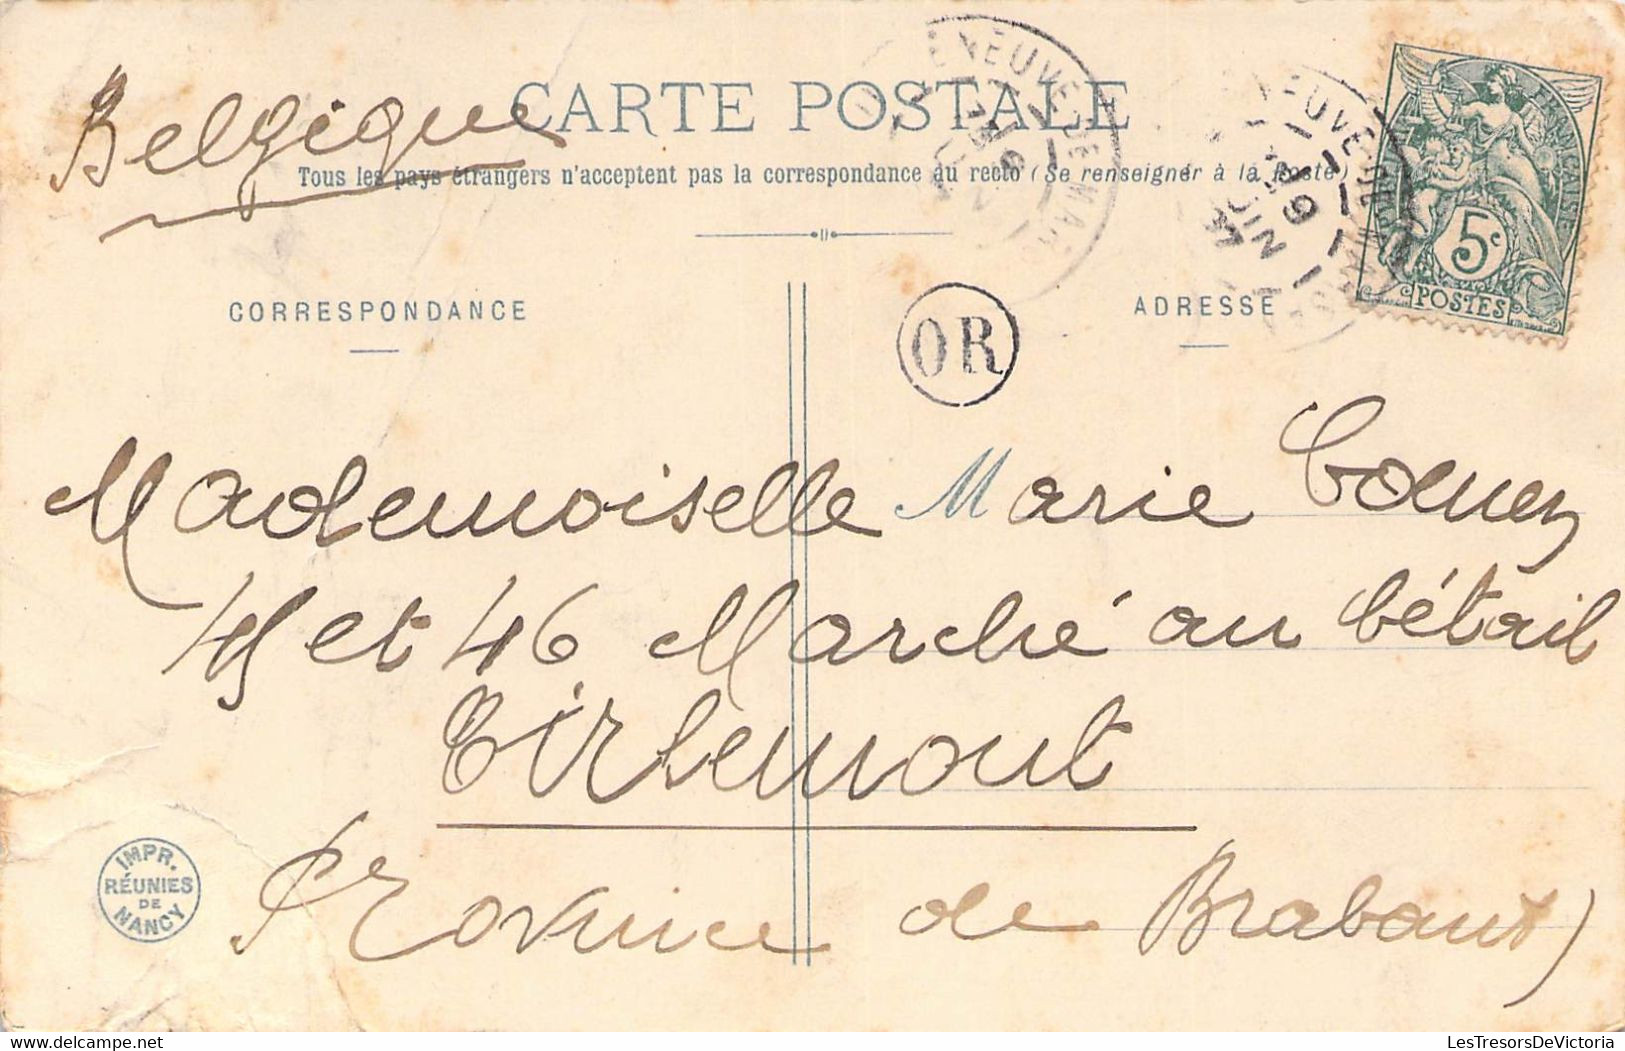 Belgique
CARTE POSTALE
Tous les pays étrangers n'acceptent pas la correspondance au recto (Se renseigner à la Poste)
CORRESPONDANCE
ADRESSE
OR
FRANÇAISE
5c
POSTES
Mademoiselle Marie
45 et 46 Marché au bétail
Tirlemont
Province de Brabant)
IMPR.
RÉUNIES
DE
NANCY
LesTresorsDeVictoria